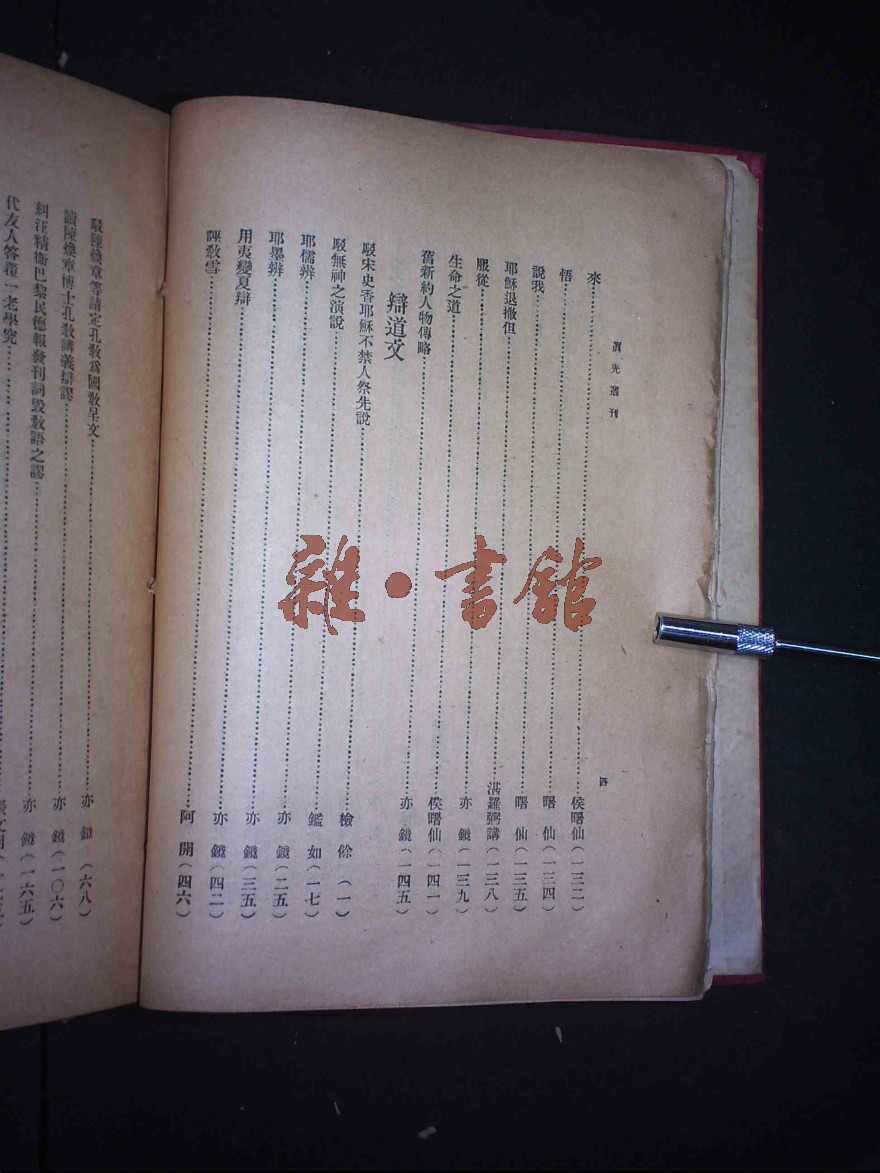 眞光叢刊
四
來……侯曙仙(一三二)
悟……曙仙(一三四)
說我……曙仙(一三五)
耶穌退撒但……湛羅弼講(一三八)
服從……亦鏡(一三九)
生命之道……侯曙仙(一四一)
舊新約人物傳略……亦鏡(一四五)
辯道文
駁宋史香耶穌不禁人祭先說……檢餘(一)
駁無神之演說……鑑如(一七)
耶儒辨……亦鏡(二五)
耶墨辨……亦鏡(三五)
用夷變夏辯……亦鏡(四二)
誣敎雪……阿開(四六)
駁陳煥章等請定孔敎爲國敎呈文……亦鏡(六八)
讀陳煥章博士孔敎講義辯謬……亦鏡(一〇六)
糾汪精衞巴黎民德報發刊詞毀敎語之謬……亦鏡(一六五)
代友人答覆一老學究……
雜·書館